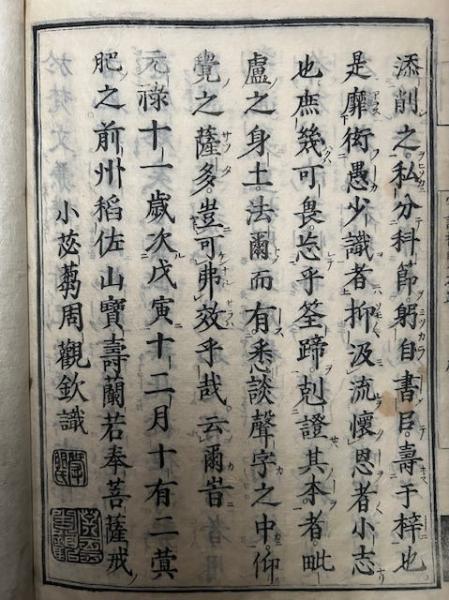 添削之私分科節躬自書巨壽于梓也
是靡衒愚少識者抑汲流懷恩者小志
也庶幾可畏忘乎筌蹄剋證其本者毗
盧之身土法爾而有悉談聲字之中仰
覺之薩多豈可弗效乎哉云爾旹
元祿十一歲次戊寅十二月十有二蓂
肥之前州稻佐山寶壽蘭若奉菩薩戒
小苾蒭周觀欽識